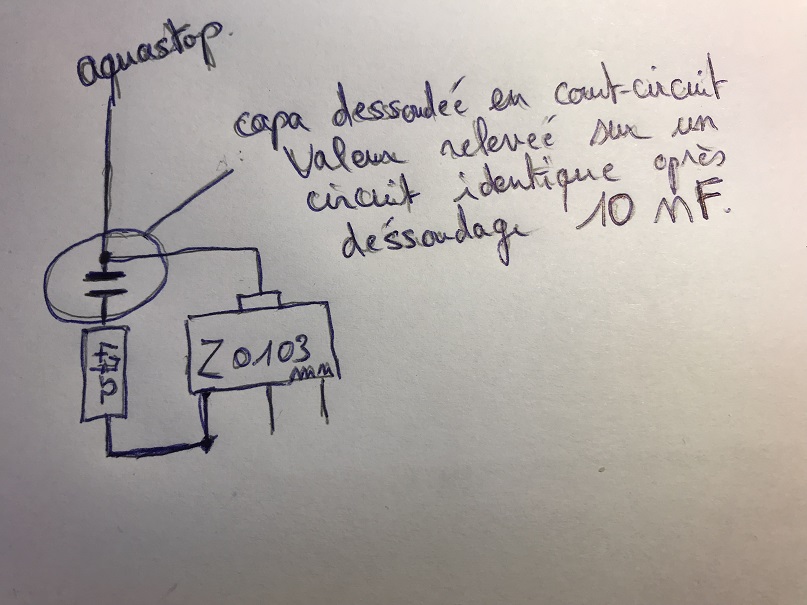 aquastop.
capa dessoudeé en court-circuit
Valeur releveé sur un
circuit identique après
déssoudage 10 nF.
47Ω
Z0103